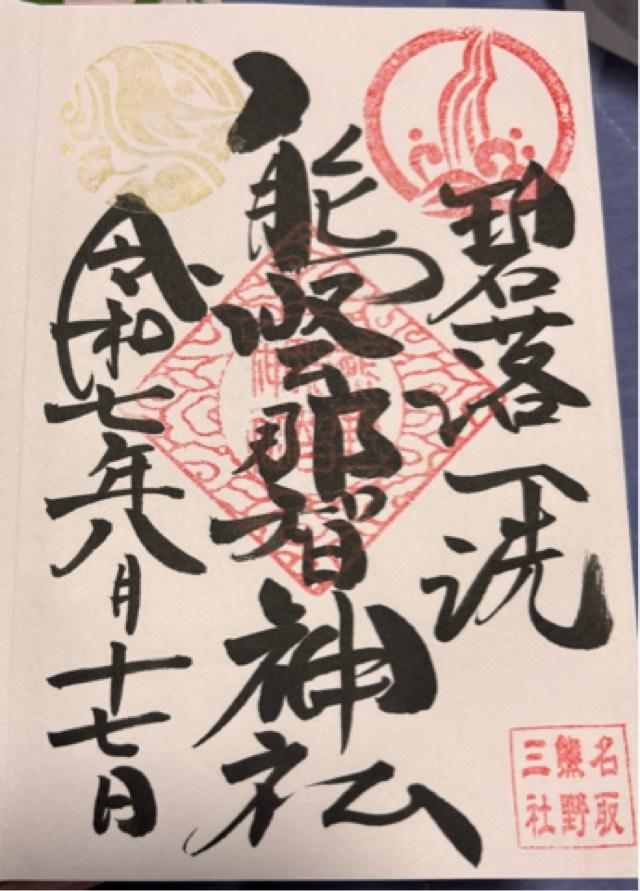 碧落一洗
熊埜那智神社
令和七年八月十七日
名取
熊野
三社